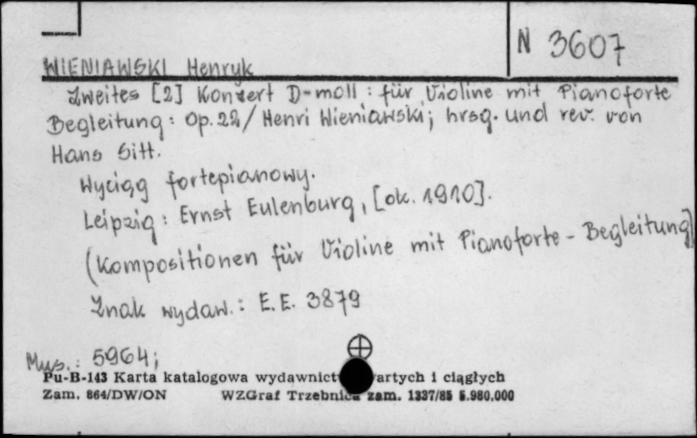 N 3607
WIENIAWSKI Henryk
Zweites [2] Konzert D-moll : für Violine mit Pianoforte
Begleitung : Op. 22 / Henri Wieniawski ; hrsg. und rev. von
Hans Sitt.
Wyciąg fortepianowy.
Leipzig : Ernst Eulenburg, [ok. 1910].
(Kompositionen für Violine mit Pianoforte - Begleitung)
Znak wydaw. : E.E. 3879
Mus. : 5964 ;
Pu-B-143 Karta katalogowa wydawnict artych i ciągłych
Zam. 864/DW/ON WZGraf Trzebnica zam. 1337/85 5.980.000